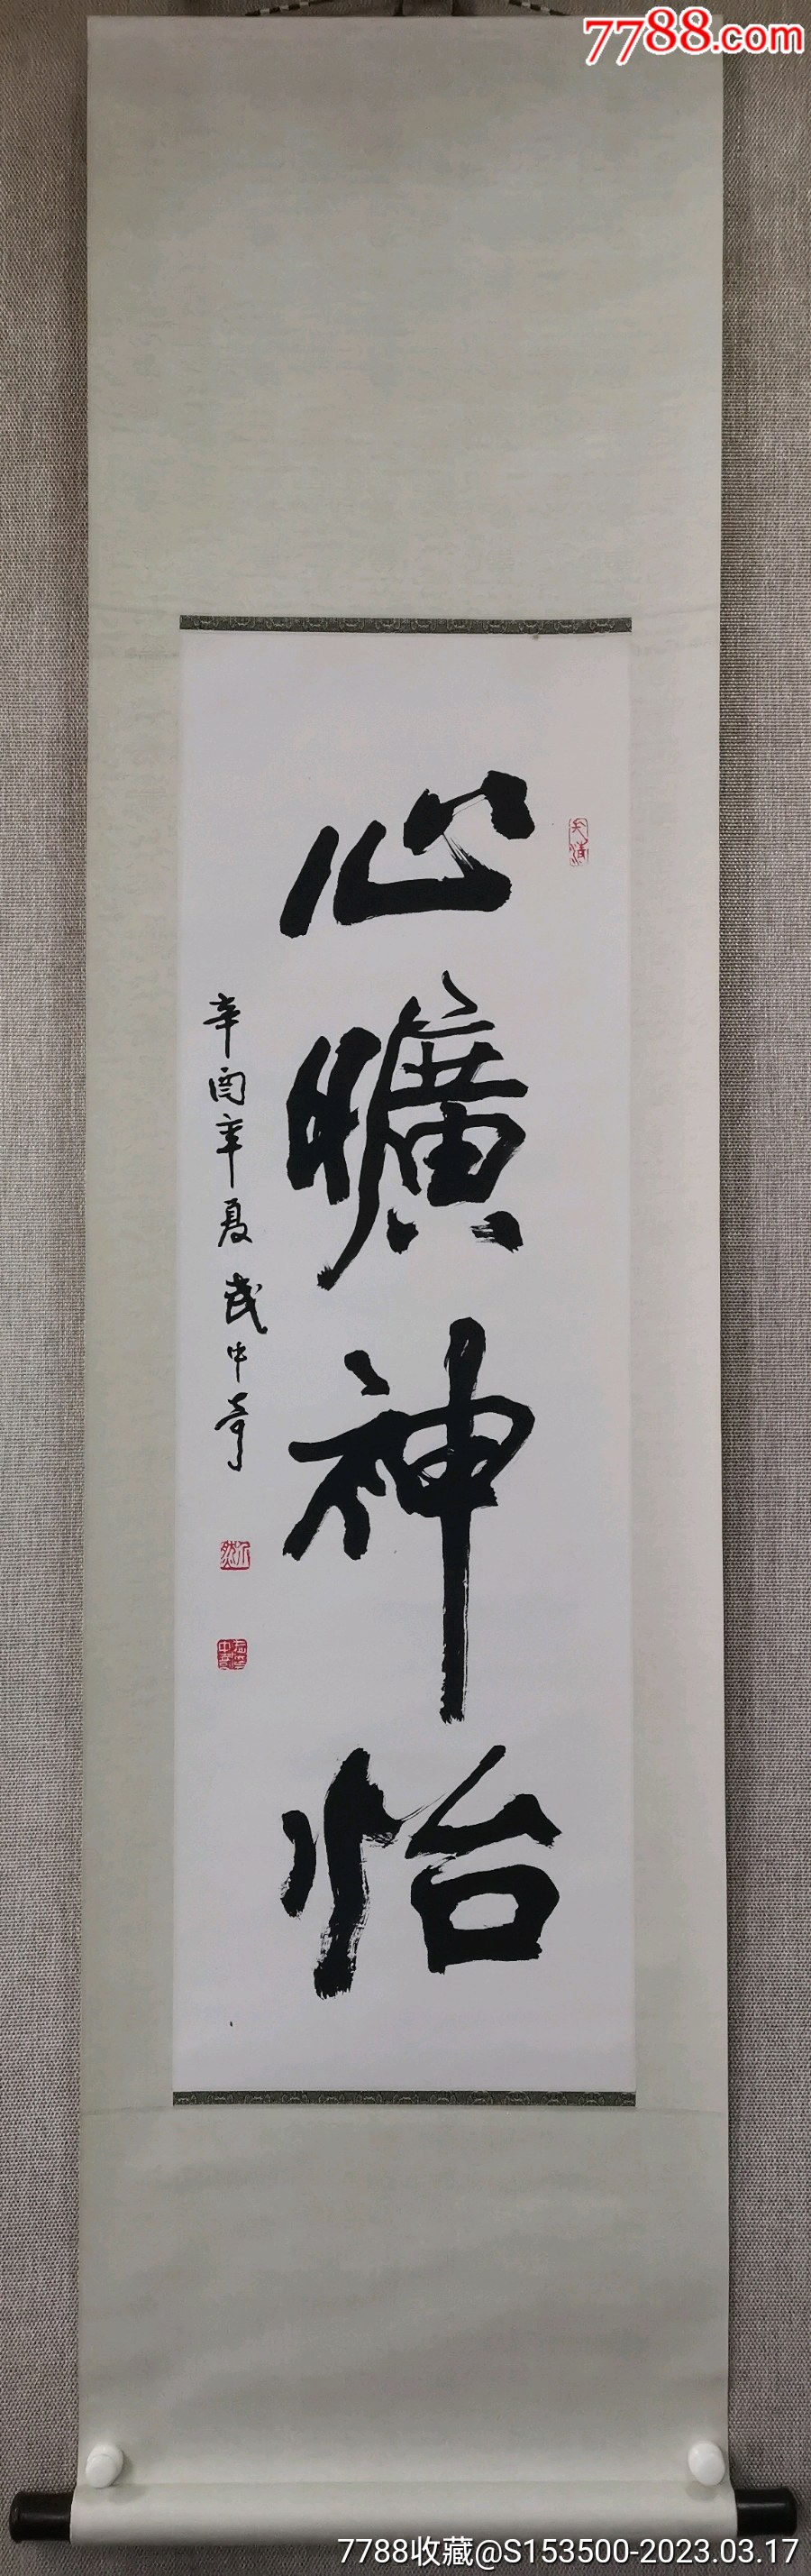 7788.com
心曠神怡
辛酉年夏武中奇
7788收藏@S153500-2023.03.17